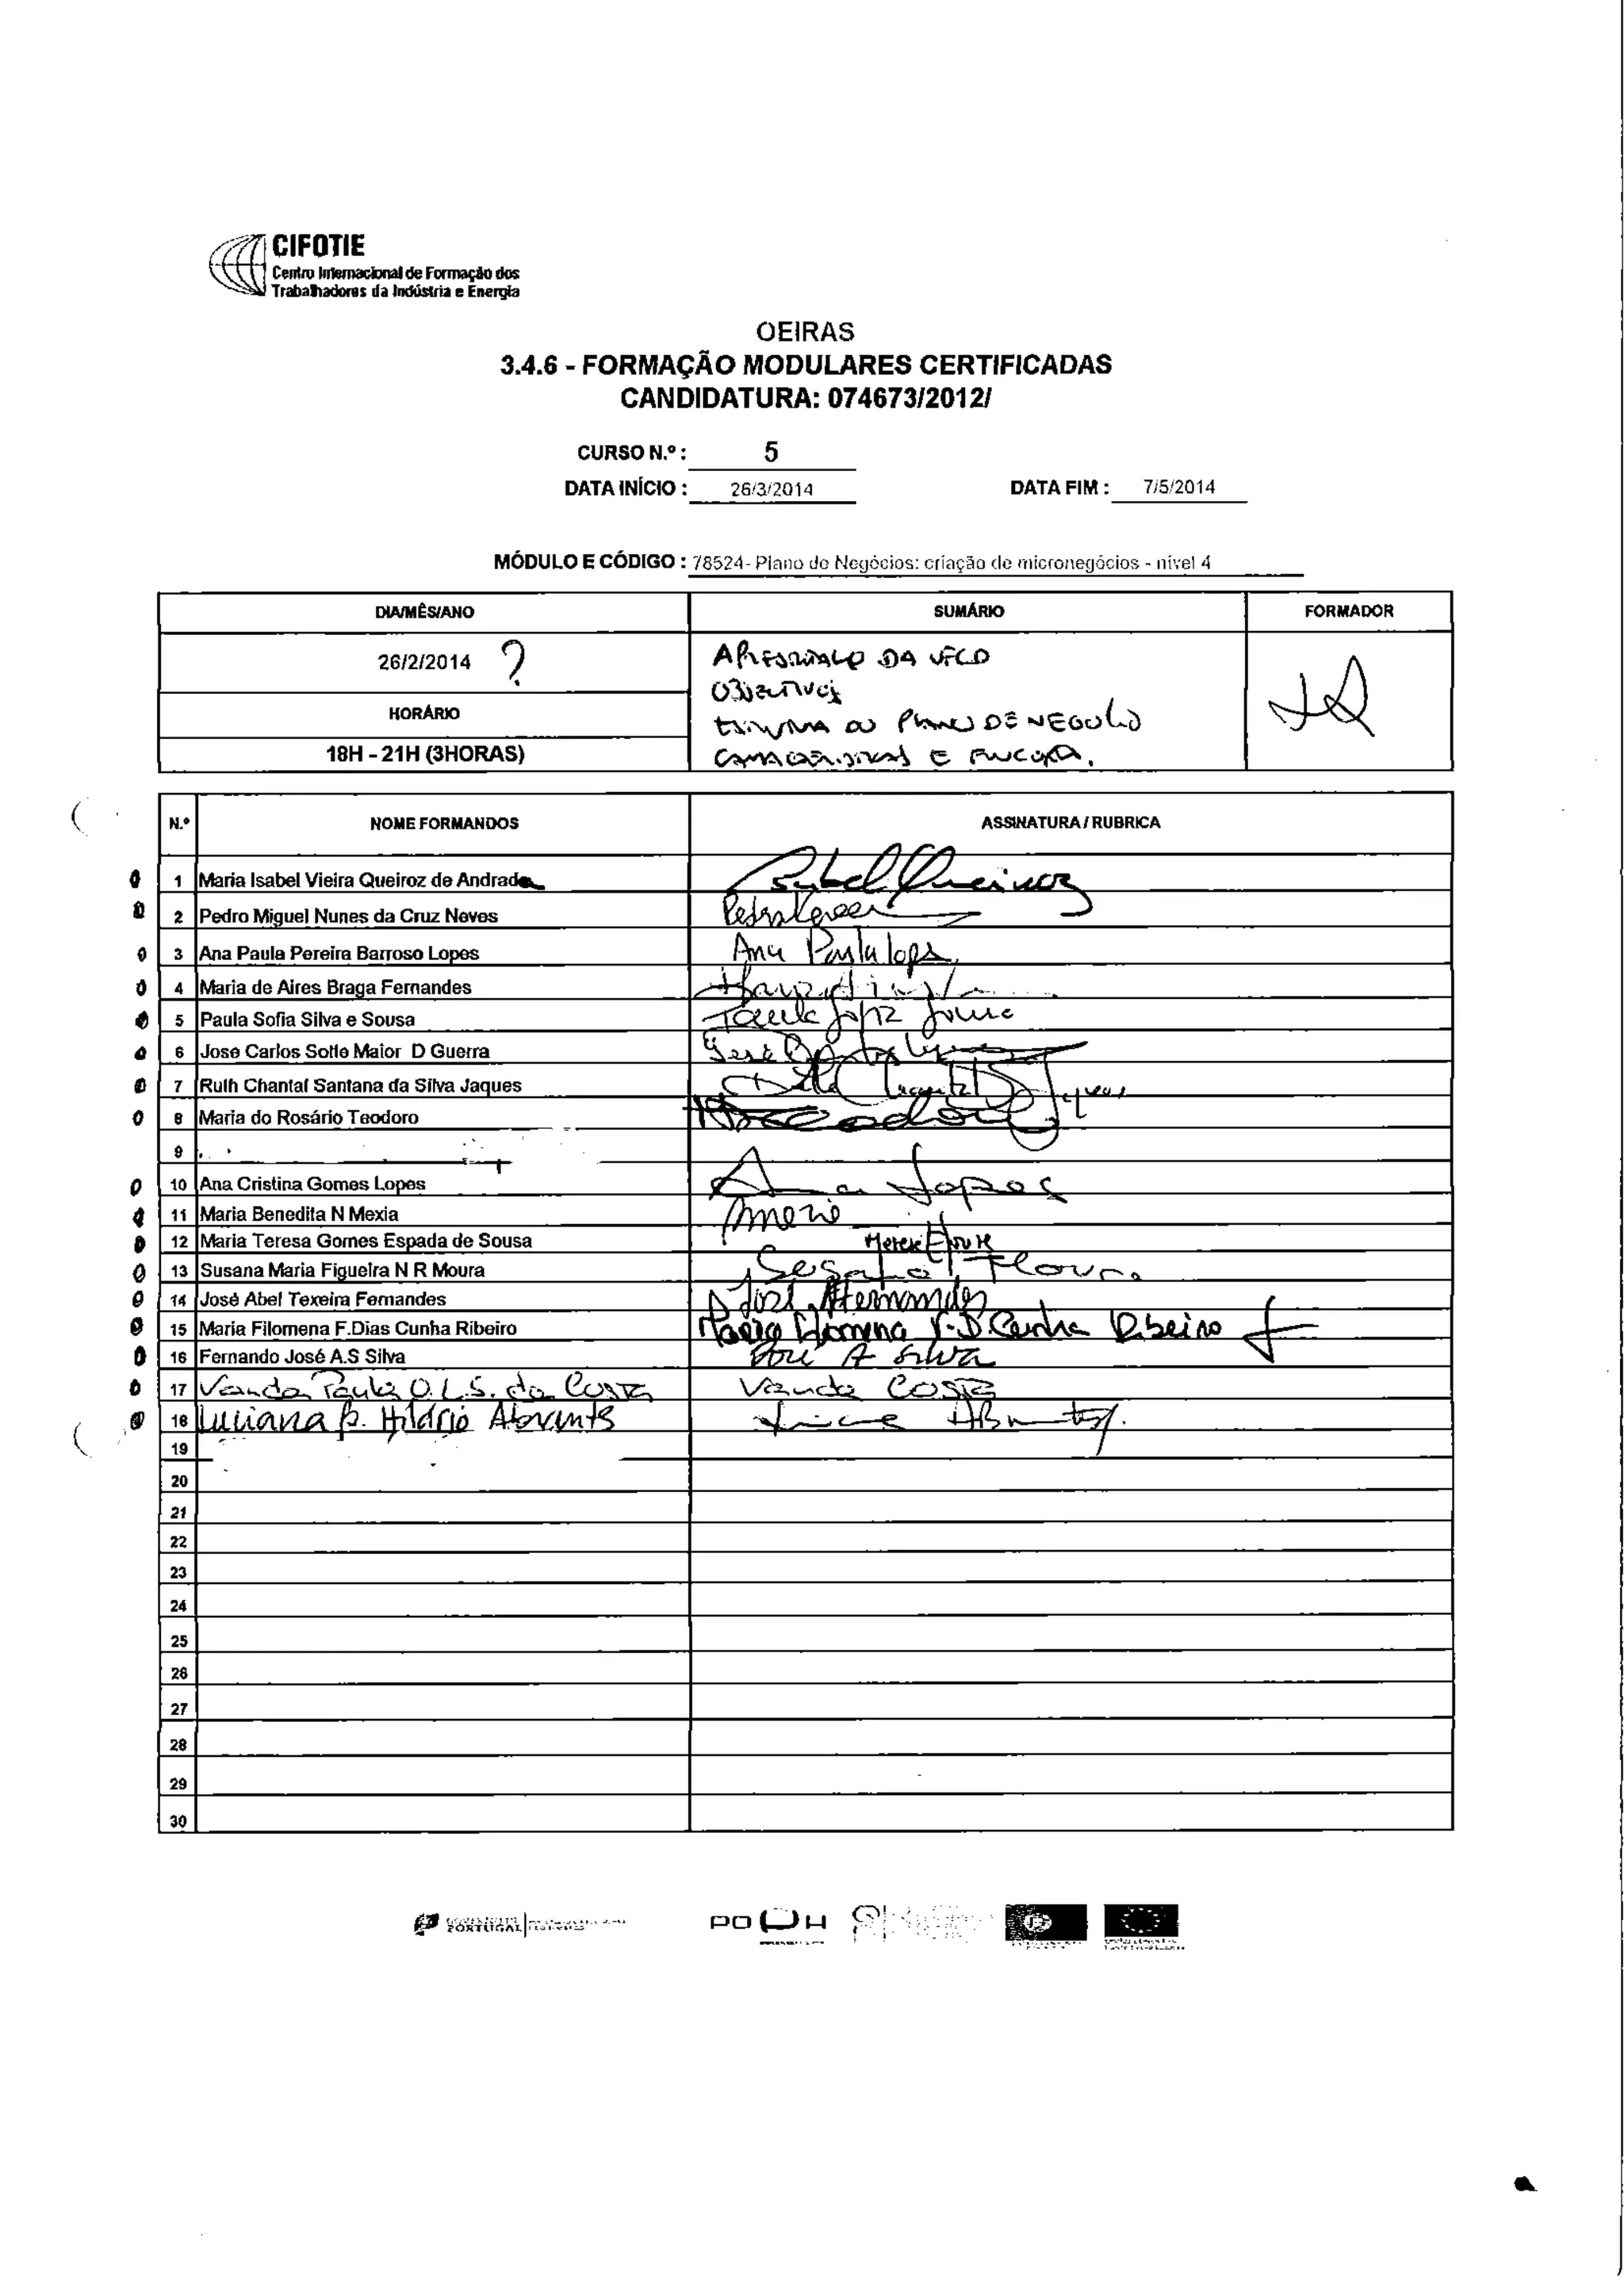 CIFOTIE
Centro Internacional de Formação dos
Trabalhadores da Indústria e Energia
OEIRAS
3.4.6 - FORMAÇÃO MODULARES CERTIFICADAS
CANDIDATURA: 074673/2012/
CURSO N.º : 5
DATA INÍCIO : 26/3/2014 DATA FIM : 7/5/2014
MÓDULO E CÓDIGO : 78524- Plano de Negócios: criação de micronegócios - nível 4
DIA/MÊS/ANO SUMÁRIO FORMADOR
26/2/2014 ?
DA UFCD
HORÁRIO
PLANO DE NEGOCIO
18H - 21H (3HORAS)
E
N.º NOME FORMANDOS ASSINATURA / RUBRICA
1 Maria Isabel Vieira Queiroz de Andrade Isabel Queiroz
2 Pedro Miguel Nunes da Cruz Neves
3 Ana Paula Pereira Barroso Lopes Ana Paula Lopes
4 Maria de Aires Braga Fernandes
5 Paula Sofia Silva e Sousa Paula Sofia Sousa
6 Jose Carlos Sotto Maior D Guerra
7 Ruth Chantal Santana da Silva Jaques
8 Maria do Rosário Teodoro
9
10 Ana Cristina Gomes Lopes Ana Lopes
11 Maria Benedita N Mexia
12 Maria Teresa Gomes Espada de Sousa
13 Susana Maria Figueira N R Moura
14 José Abel Texeira Fernandes José A Fernandes
15 Maria Filomena F.Dias Cunha Ribeiro Maria Filomena F.D Cunha Ribeiro
16 Fernando José A.S Silva José A Silva
17 Vanda Paula O.L.S. da Costa Vanda Costa
18 Luciana B. Hilário Abrantes
19
20
21
22
23
24
25
26
27
28
29
30
PORTUGAL
PO H